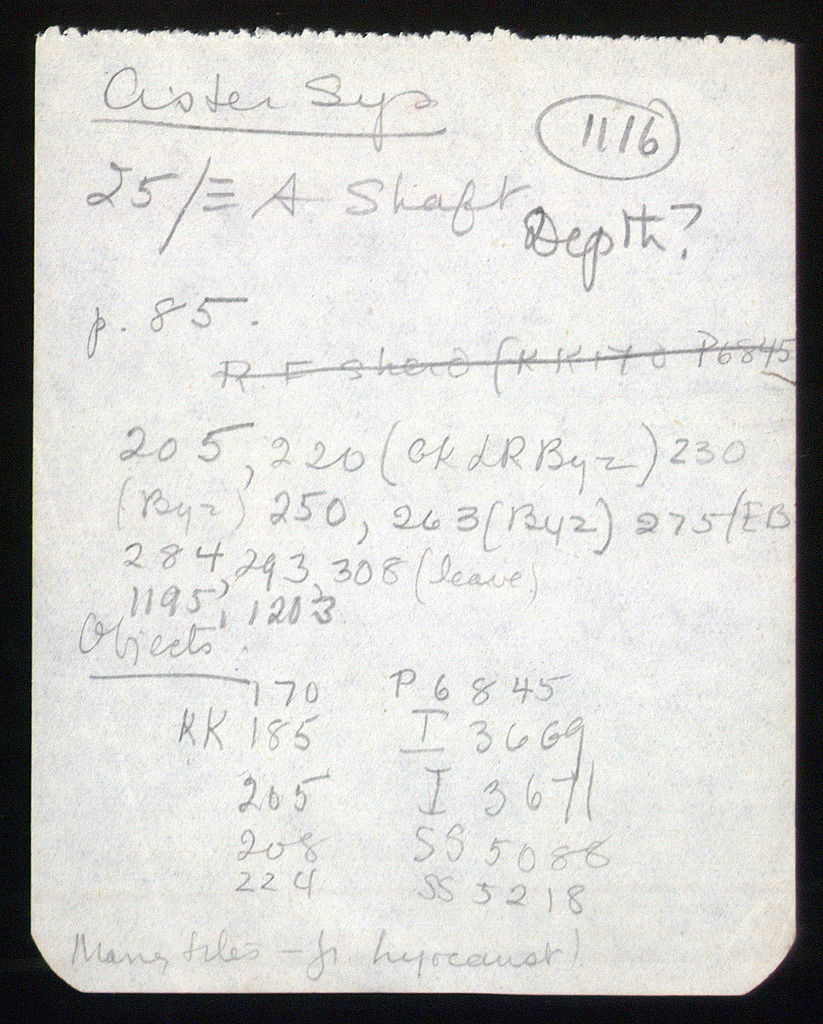 Cister Sys
1116
25/Ξ A Shaft
Depth?
p. 85.
R.F. sherd (KK 170 P6845
205, 220 (OK LR Byz) 230
(Byz) 250, 263 (Byz) 275/EB
284, 293, 308 (leave)
1195, 1203
Objects:
170 P 6845
KK 185 I 3669
205 I 3671
208 SS 5088
224 SS 5218
Many tiles – fr hypocaust!